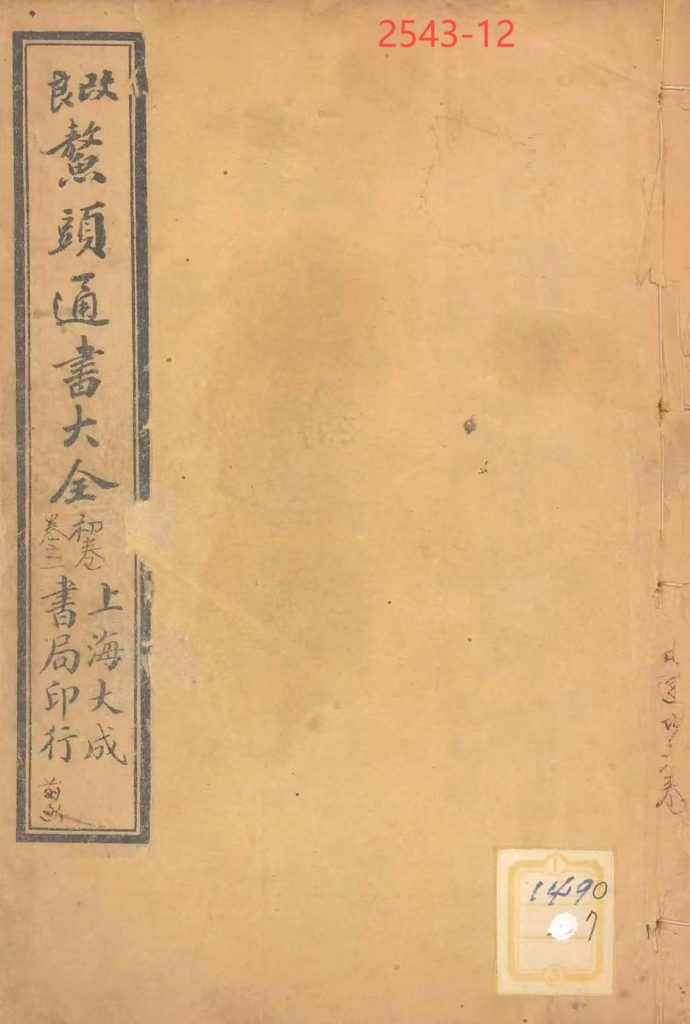 2543-12
改良
鰲頭通書大全
初卷
卷之一
上海大成
書局印行
1490
7